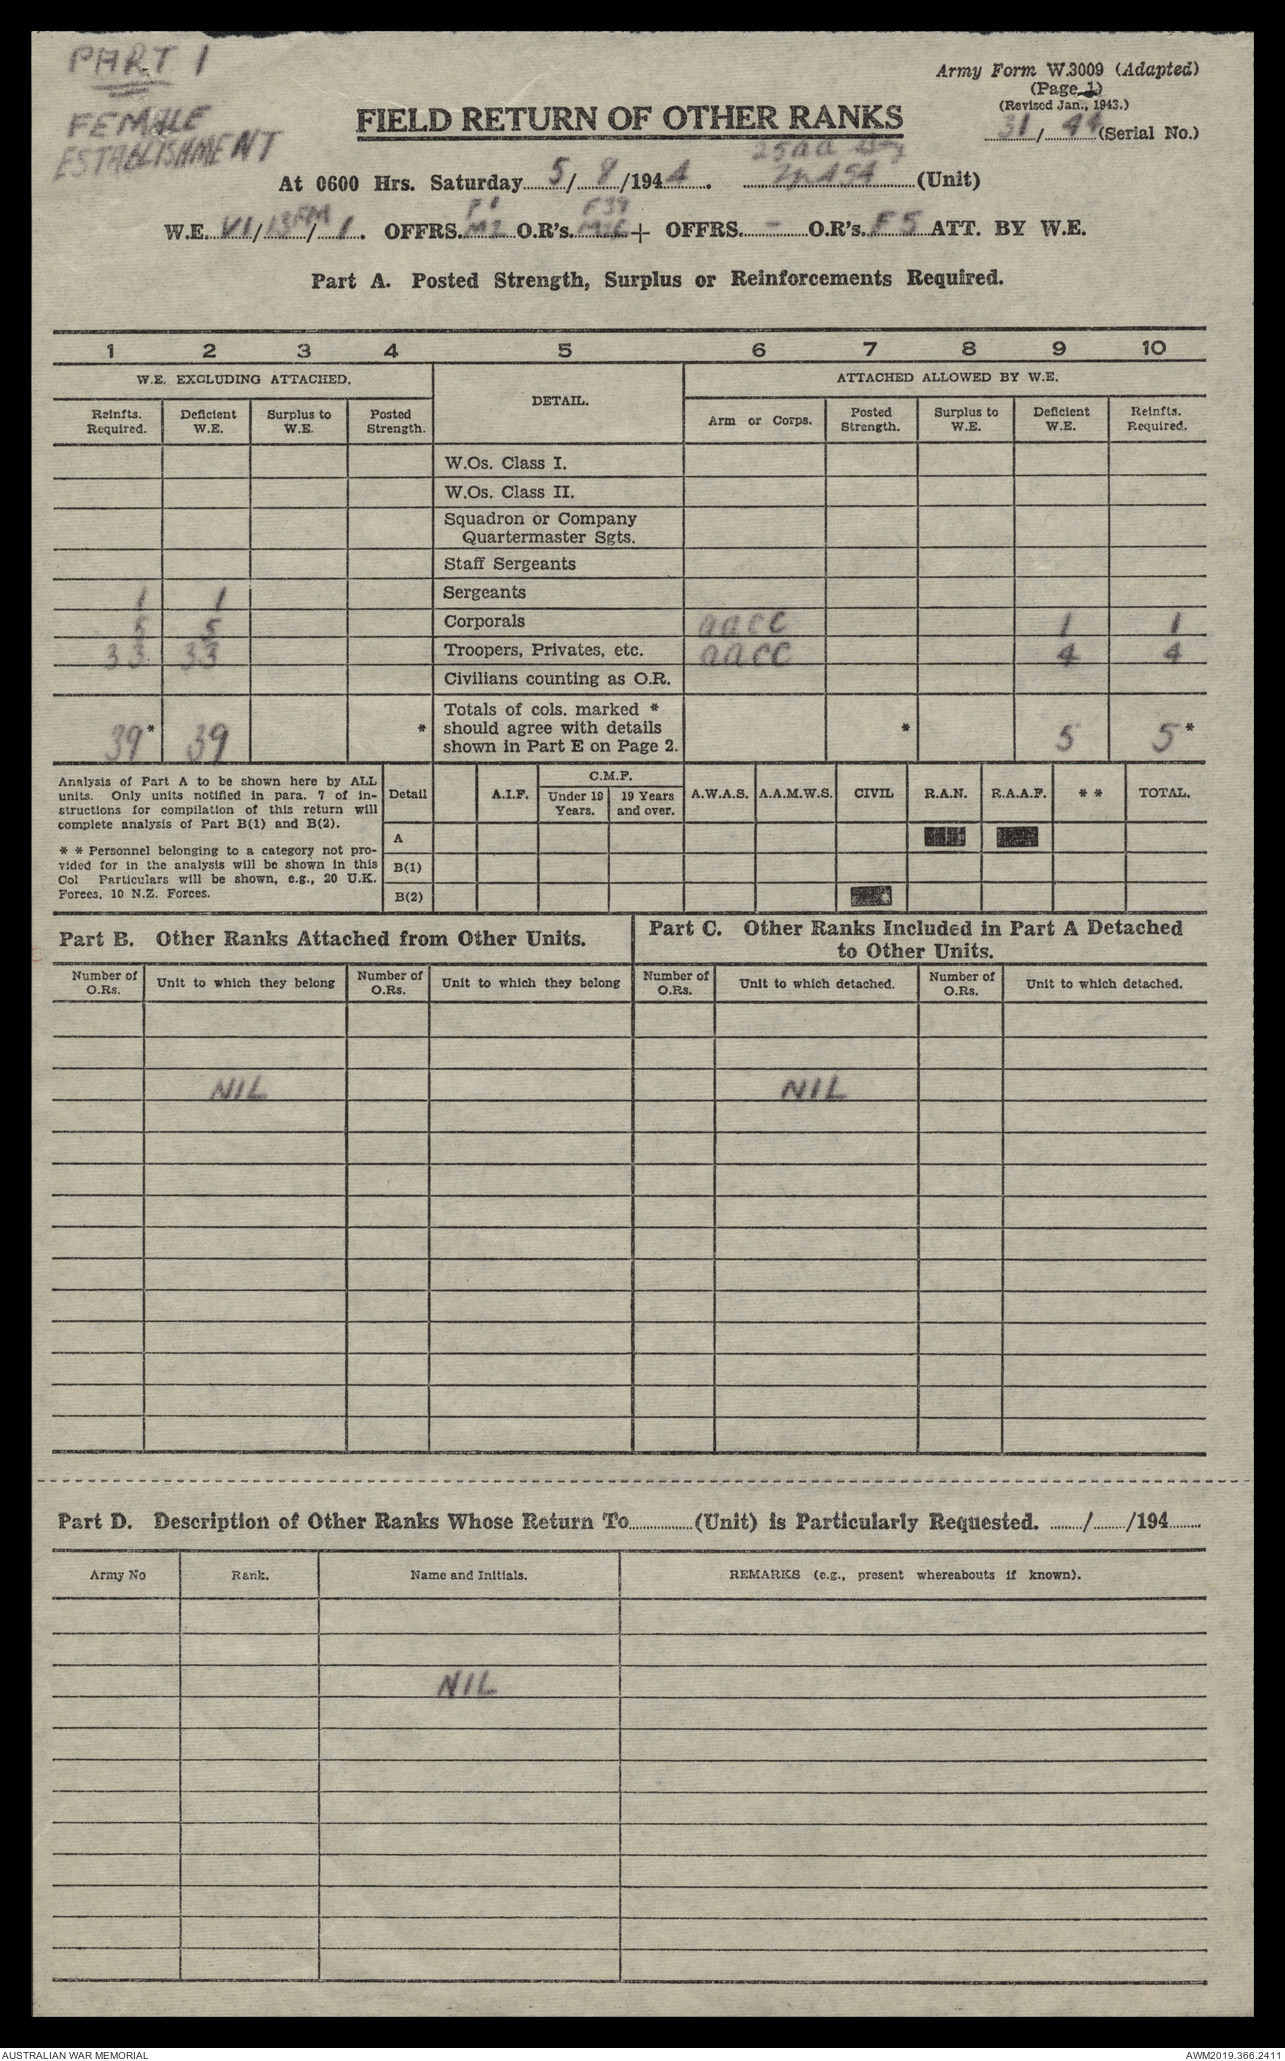 PART 1
FEMALE
ESTABLISHMENT
Army Form W.3009 (Adapted)
(Page 1)
(Revised Jan., 1943.)
31/44 (Serial No.)
FIELD RETURN OF OTHER RANKS
25 aa
At 0600 Hrs. Saturday 5/8/1944. (Unit)
F1 F39
W.E. VI/13FM/1. OFFRS. M2 O.R's. + OFFRS. - O.R's. F5 ATT. BY W.E.
Part A. Posted Strength, Surplus or Reinforcements Required.
1 2 3 4 5 6 7 8 9 10
W.E. EXCLUDING ATTACHED. DETAIL. ATTACHED ALLOWED BY W.E.
Reinfts. Required. Deficient W.E. Surplus to W.E. Posted Strength. Arm or Corps. Posted Strength. Surplus to W.E. Deficient W.E. Reinfts. Required.
W.Os. Class I.
W.Os. Class II.
Squadron or Company
Quartermaster Sgts.
Staff Sergeants
1 1 Sergeants
5 5 Corporals aacc 1 1
33 33 Troopers, Privates, etc. aacc 4 4
Civilians counting as O.R.
Totals of cols. marked *
39* 39 * should agree with details * 5 5*
shown in Part E on Page 2.
Analysis of Part A to be shown here by ALL
units. Only units notified in para. 7 of in-
structions for compilation of this return will
complete analysis of Part B(1) and B(2).
* * Personnel belonging to a category not pro-
vided for in the analysis will be shown in this
Col Particulars will be shown, e.g., 20 U.K.
Forces, 10 N.Z. Forces.
Detail A.I.F. C.M.F. Under 19 Years. 19 Years and over. A.W.A.S. A.A.M.W.S. CIVIL R.A.N. R.A.A.F. * * TOTAL.
A
B(1)
B(2)
Part B. Other Ranks Attached from Other Units.
Part C. Other Ranks Included in Part A Detached
to Other Units.
Number of O.Rs. Unit to which they belong Number of O.Rs. Unit to which they belong Number of O.Rs. Unit to which detached. Number of O.Rs. Unit to which detached.
NIL NIL
Part D. Description of Other Ranks Whose Return To (Unit) is Particularly Requested. / /194
Army No Rank. Name and Initials. REMARKS (e.g., present whereabouts if known).
NIL
AUSTRALIAN WAR MEMORIAL AWM2019.366.2411